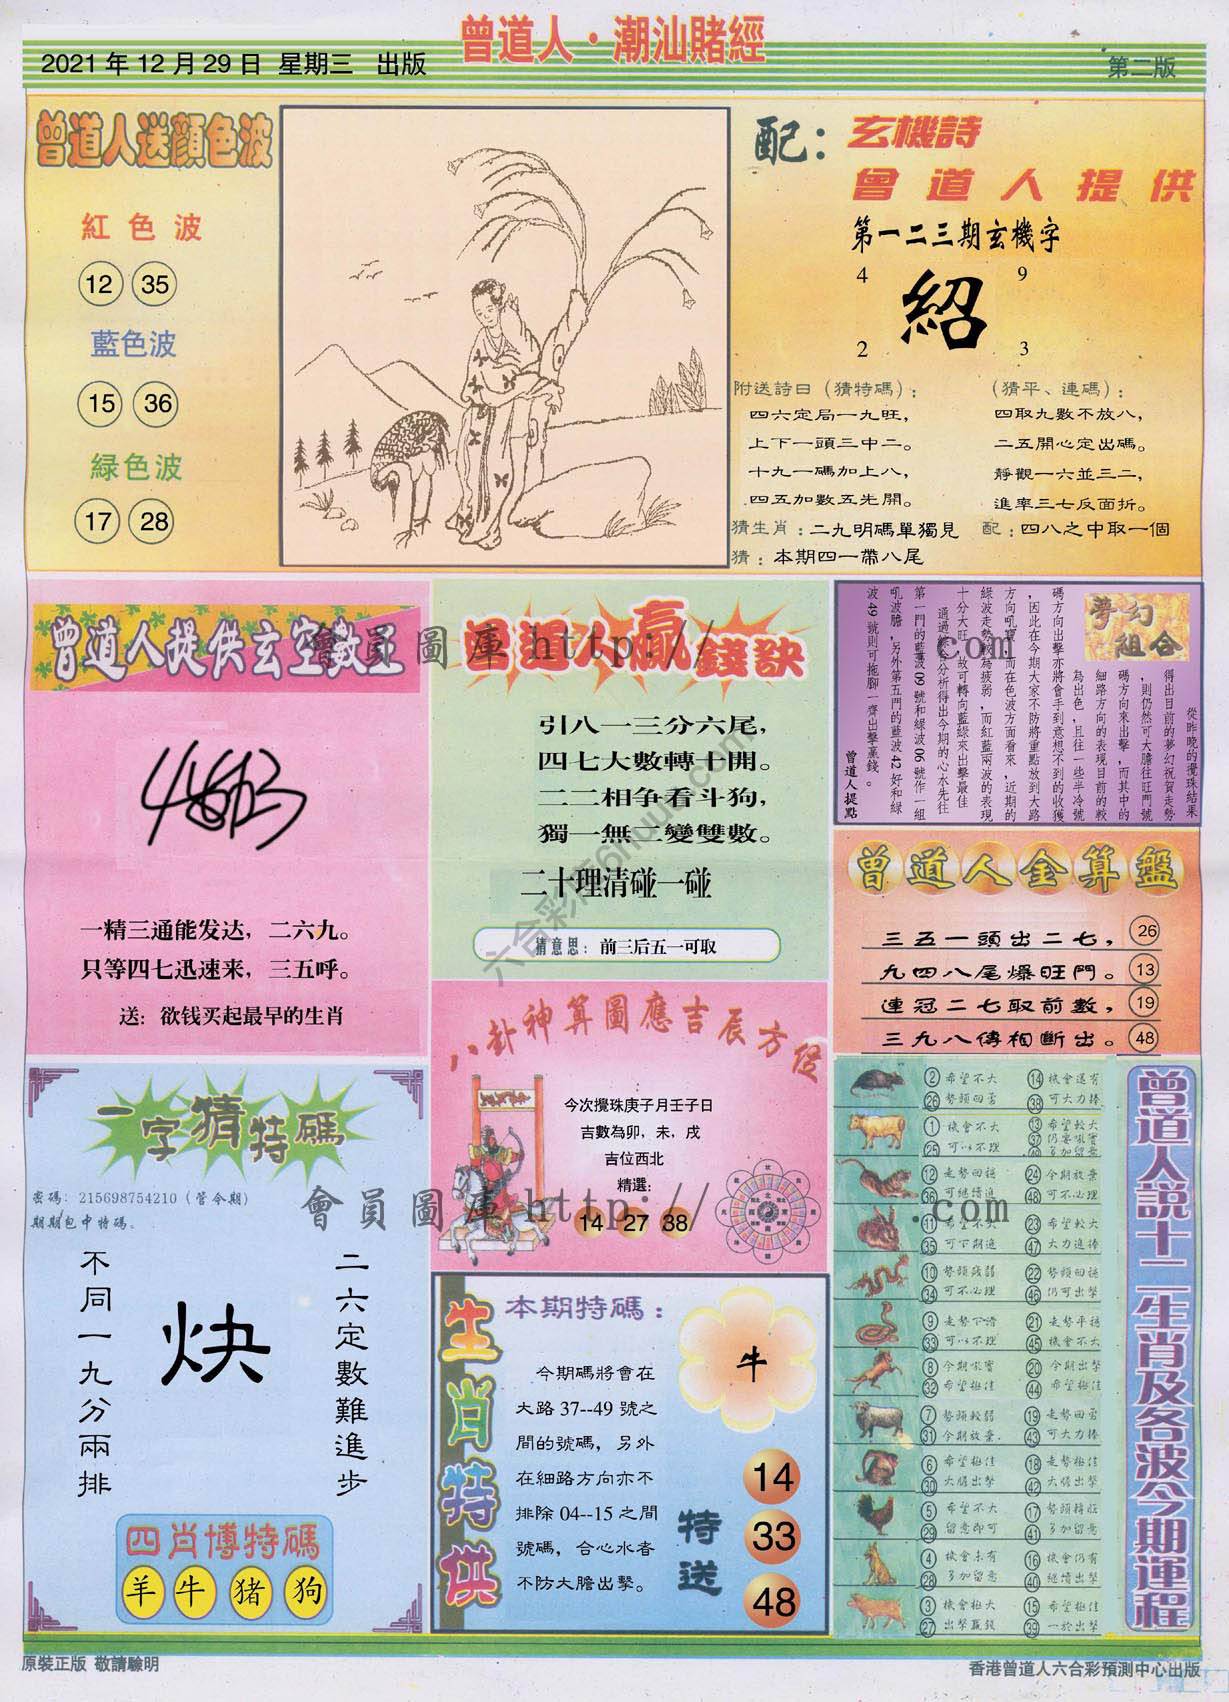 曾道人·潮汕賭經
2021年12月29日 星期三 出版
第二版
曾道人送顏色波
紅色波
12 35
藍色波
15 36
綠色波
17 28
配：玄機詩
曾道人提供
第一二三期玄機字
4 9
紹
2 3
附送詩曰（猜特碼）：
四六定局一九旺，
上下一頭三中二。
十九一碼加上八，
四五加數五先開。
（猜平、連碼）：
四取九數不放八，
二五開心定出碼。
靜觀一六並三二，
進率三七反面折。
猜生肖：二九明碼單獨見
配：四八之中取一個
猜：本期四一帶八尾
曾道人提供玄空數王
一精三通能发达，二六九。
只等四七迅速来，三五呼。
送：欲钱买起最早的生肖
曾道人贏錢訣
引八一三分六尾，
四七大數轉十開。
二二相争看斗狗，
獨一無二變雙數。
二十理清碰一碰
猜意思：前三后五一可取
夢幻組合
從昨晚的攪珠結果
得出目前的夢幻祝賀走勢
，則仍然可大膽往旺門號
碼方向來出擊，而其中的
細路方向的表現目前的較
為出色，且往一些半冷號
碼方向出擊亦將會手到意想不到的收獲
，因此在今期大家不防將重點放到大路
方向吼寶，而在色波方面看來，近期的
綠波走勢較為疲弱，而紅藍兩波的表現
十分大旺，故可轉向藍綠來出擊最佳
通過綜合分析得出今期的心水先往
第一門的藍波09號和綠波06號作一組
吼波膽，另外第五門的藍波42好和綠
波49號則可拖腳一齊出擊贏錢。
曾道人提點
曾道人金算盤
三五一頭出二七， 26
九四八尾爆旺門。 13
連冠二七取前數， 19
三九八傳相斷出。 48
八卦神算圖應吉辰方位
今次攪珠庚子月壬子日
吉數為卯，未，戌
吉位西北
精選：
14 27 38
一字猜特碼
密碼：215698754210（管今期）
期期包中特碼。
二六定數難進步
炔
不同一九分兩排
四肖博特碼
羊 牛 猪 狗
生肖特供
本期特碼：
今期碼將會在
大路37--49號之
間的號碼，另外
在細路方向亦不
排除04--15之間
號碼，合心水者
不防大膽出擊。
牛
特送
14
33
48
曾道人説十二生肖及各波今期運程
2 希望不大 14 機會還有
26 勢頭回勇 38 可大力捧
1 機會不大 13 希望較大
37 仍要吼實
25 可以不理 49 多加留意
12 走勢回穩 24 今期放棄
36 可繼續進 48 可不必理
11 希望不大 23 希望較大
35 可下期進 47 大力進捧
10 勢頭疲弱 22 勢頭回穩
34 可不必理 46 仍可出擊
9 走勢下滑 21 走勢平穩
33 可以不理 45 機會不大
8 今期吼實 20 今期出擊
32 希望極佳 44 希望極佳
7 勢頭較弱 19 走勢回勇
31 今期放棄. 43 可大力捧
6 希望極佳 18 走勢極佳
30 大膽出擊 42 大膽出擊
5 希望不大 17 勢頭轉旺
29 留意即可 41 多加留意
4 機會未有 16 機會仍有
28 多加留意 40 繼續出擊
3 機會極大 15 希望極佳
27 出擊贏錢 39 一於出擊
會員圖庫 http:// .com
會員圖庫 http:// .com
原裝正版 敬請驗明
香港曾道人六合彩預測中心出版